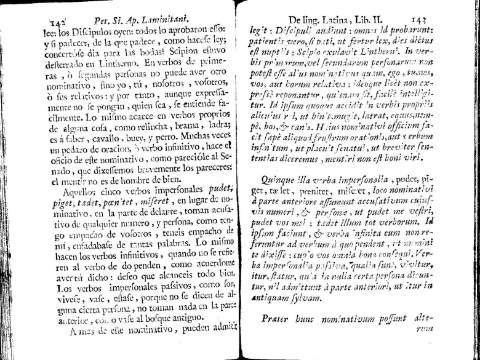 142 Pet. Si. Ap. Laminitani.
leer: los Discipulos oyen: todos lo aprobaron este
y si padecer, de la que padece, como hacese ley;
concertóse dia para las bodas: Scipion estuvo
desterrado en Linterno. En verbos de prime-
ras, ò segundas personas no puede aver otro
nominativo, sino yo, tú, nosotros, vosotros,
ò sus relativos: y por tanto, aunque expressa-
mente no se pongan, quien sea, se entiende fa-
cilmente. Lo mismo acaece en verbos proprios
de alguna cosa, como relincha, brama, ladra;
es à saber, cavallo, buey, y perro. Muchas veces
un pedazo de oracion, ò verbo infinitivo, hace el
oficio de este nominativo, como parecióle al Se-
nado, que dixessemos brevemente los pareceres:
el mentir no es de hombre de bien.
Aquellos cinco verbos impersonales pudet,
piget, tædet, pœnitet, miseret, en lugar de no-
minativo, en la parte de delante, toman acusa-
tivo de qualquier numero, y persona, como ten-
go empacho de vosotros; teneis empacho de
mi, enfadabase de tantas palabras. Lo mismo
hacen los verbos infinitivos, quando no se refie-
ren al verbo de do penden, como acuerdome
avertú dicho: deseo que alcanceis todo bien.
Los verbos impersonales passivos, como son,
vivese, vase, estase, porque no se dicen de al-
guna cierta persona, no toman nada en la parte
anterior, como vase al bosque antiguo.
A mas de este nominativo, pueden admitir
De ling. Latina, Lib. II. 143
legit: Discipuli audiunt: omnes id probarunt
patientis vero, si pati, ut fertur lex, dies dictus
est nuptiis: Scipio exulavit Linterni. In ver-
bis primarum, vel secundarum personarum non
potest esse alius nominativus quam, ego, tu, nos,
vos, aut horum relativa: ideoque licèt non ex-
pressè reponantur, qui nam sit, facilè intelligi-
tur. Id ipsum quoque accidit in verbis propriis
alicujus rei, ut hinnit, mugit, latrat, equus, nem-
pè, bos, & canis. Hujus nominativi officium fa-
cit sæpè aliquod frustum orationis, aut verbum
infinitum, ut placuit senatui, ut breviter sen-
tentias diceremus, mentiri non est boni viri.
Quinque illa verba impersonalia, pudet, pi-
get, tædet, pœnitet, miseret, loco nominativi
à parte anteriore assumunt accusativum cujus-
vis numeri, & personæ, ut pudet me vestri,
pudet vos mei: tædet illum tot verborum. Id
ipsum faciunt, & verba infinita cum non re-
feruntur ad verbum à quo pendent, ut memini
te dixisse: cupio vos omnia bona consequi. Ver-
ba impersonalia passiva, qualia sunt, vivitur,
itur, statur, quia nulla certa persona dicun-
tur, nil admittunt à parte anteriori, ut itur in
antiquam sylvam.
Præter hunc nominativum possunt alte-
rum